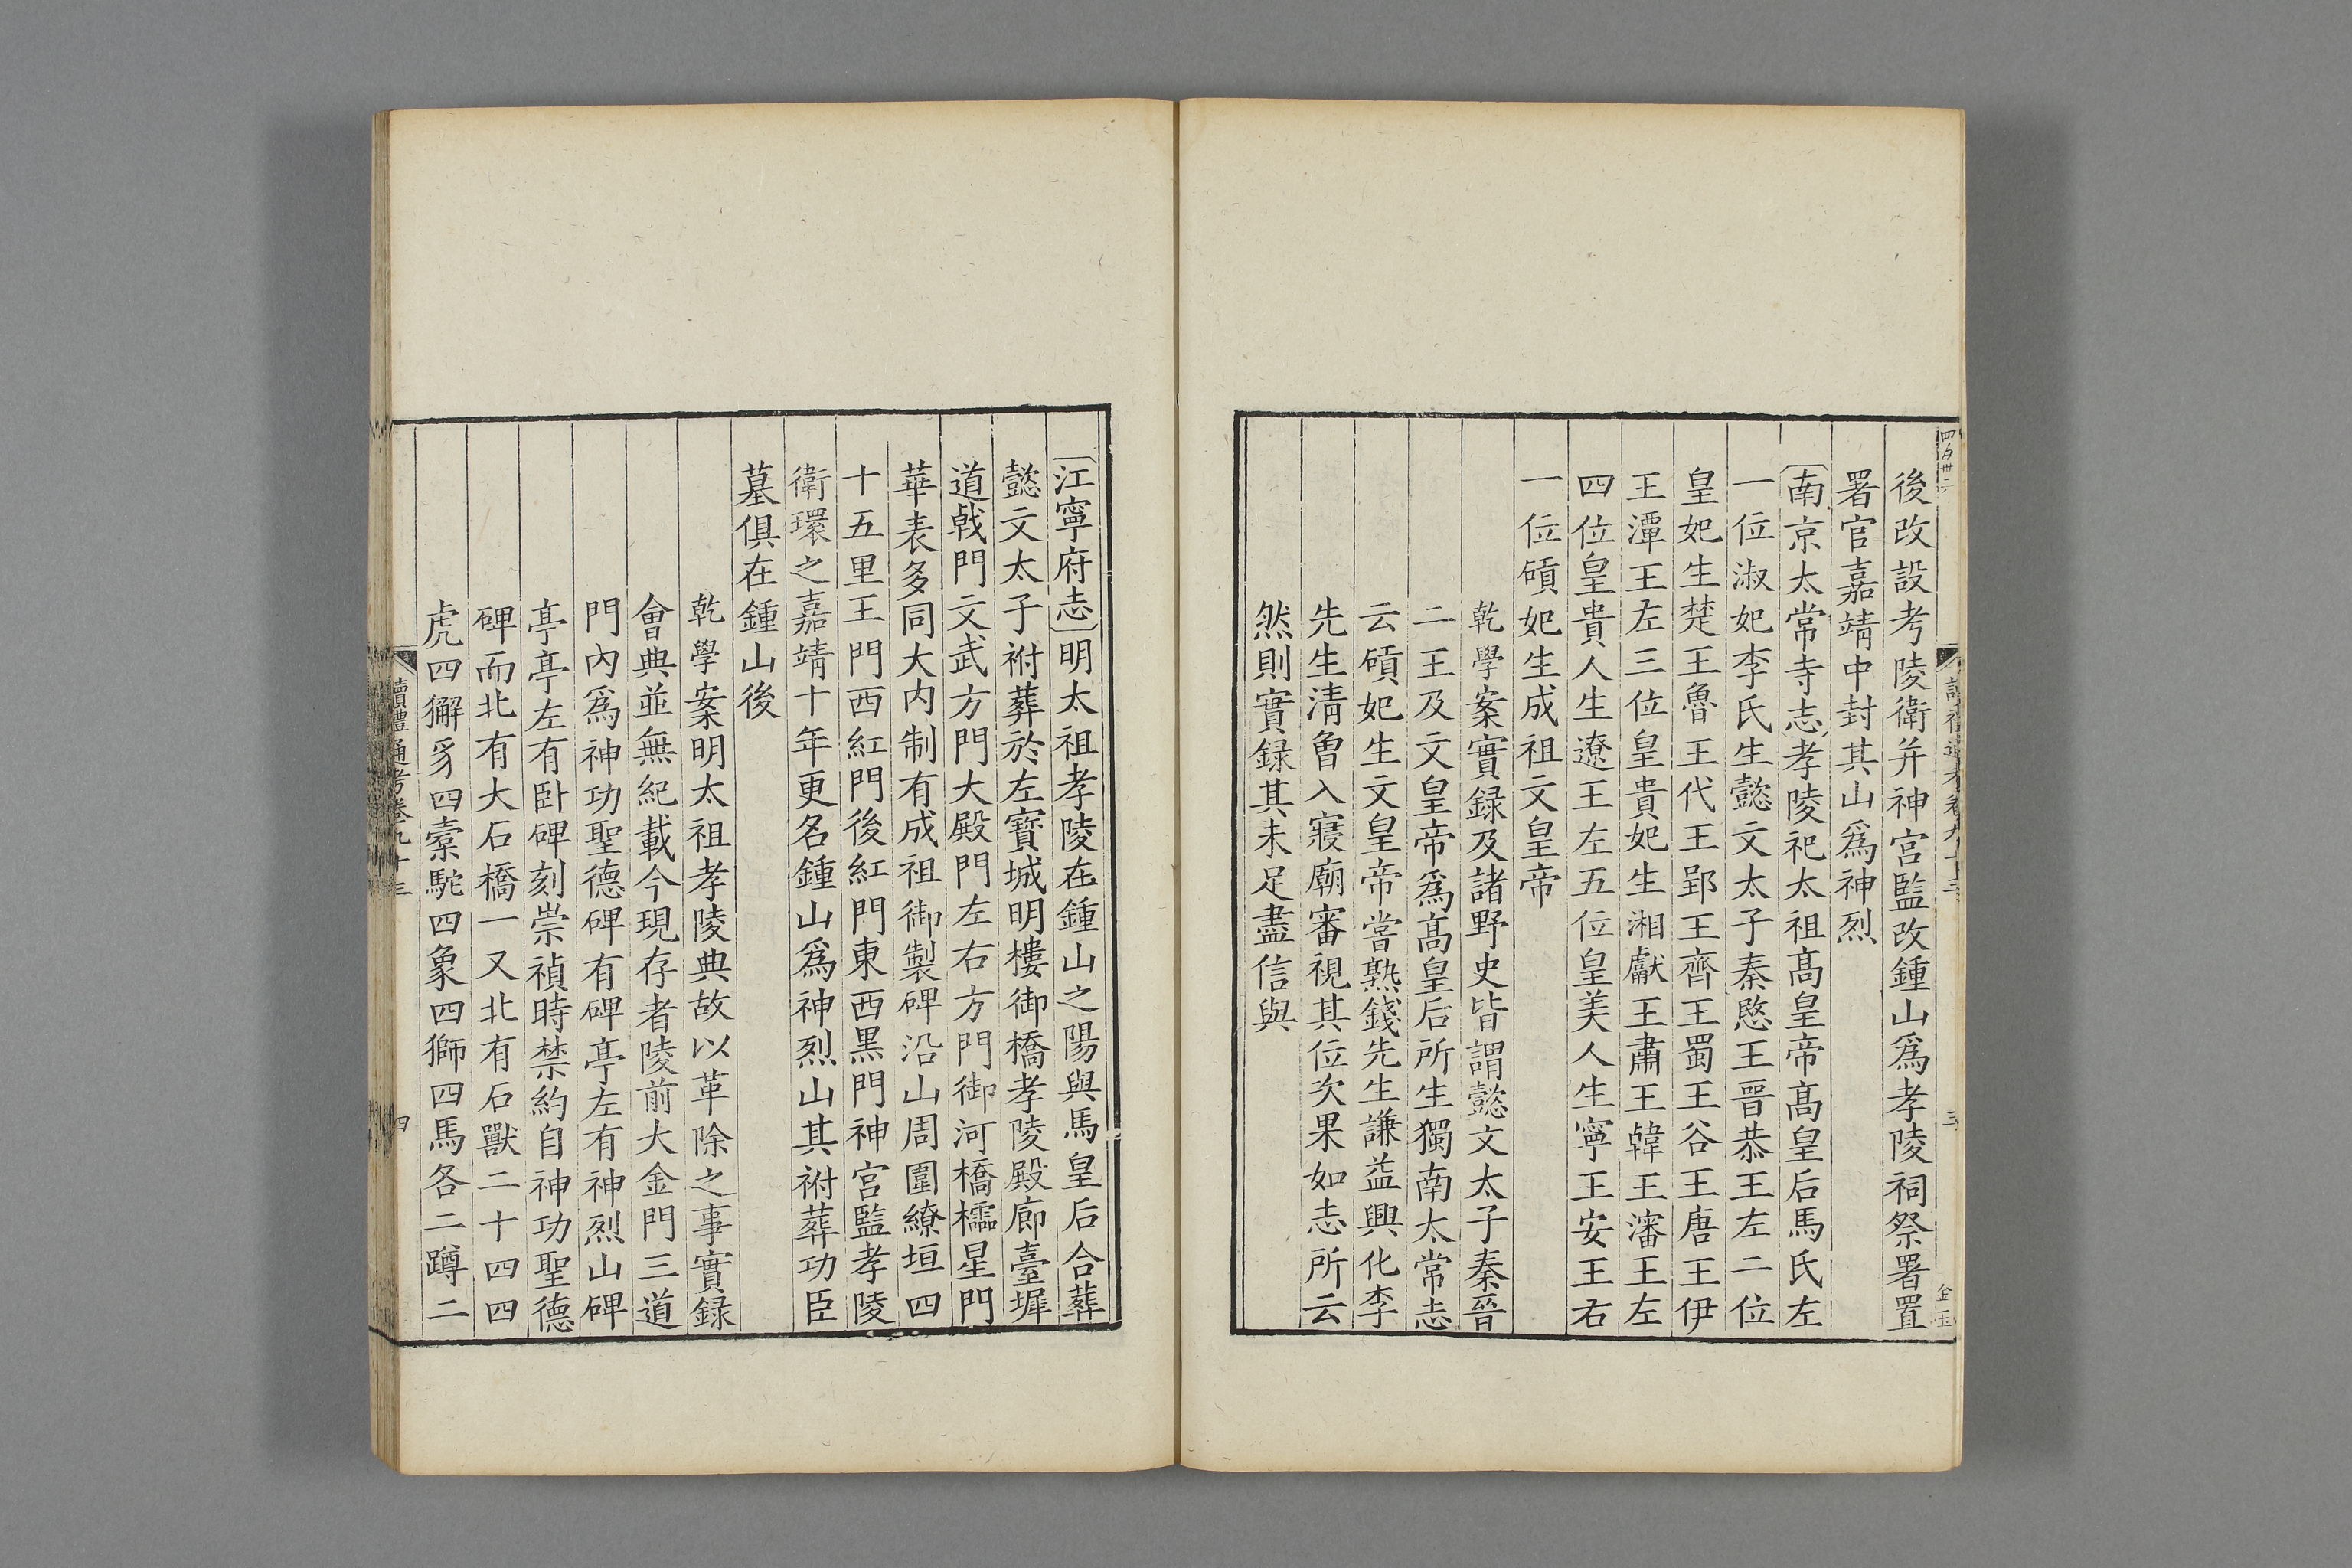 後改設考陵衛并神宮監改鍾山爲孝陵祠祭署置
署官嘉靖中封其山爲神烈
南京太常寺志孝陵祀太祖髙皇帝髙皇后馬氏左
一位淑妃李氏生懿文太子秦愍王晉恭王左二位
皇妃生楚王魯王代王郢王齊王蜀王谷王唐王伊
王潭王左三位皇貴妃生湘獻王肅王韓王瀋王左
四位皇貴人生遼王左五位皇美人生寧王安王右
一位碩妃生成祖文皇帝
乾學案實録及諸野史皆謂懿文太子秦晉
二王及文皇帝爲髙皇后所生獨南太常志
云碩妃生文皇帝嘗熟錢先生謙益興化李
先生淸曾入寢廟審視其位次果如志所云
然則實録其未足盡信與
江寧府志明太祖孝陵在鍾山之陽與馬皇后合葬
懿文太子祔葬於左寳城明樓御橋孝陵殿廊臺墀
道戟門文武方門大殿門左右方門御河橋櫺星門
華表多同大内制有成祖御製碑沿山周圍繚垣四
十五里王門西紅門後紅門東西黒門神宮監孝陵
衛環之嘉靖十年更名鍾山爲神烈山其祔葬功臣
墓俱在鍾山後
乾學案明太祖孝陵典故以革除之事實録
會典並無紀載今現存者陵前大金門三道
門內爲神功聖德碑有碑亭左有神烈山碑
亭亭左有卧碑刻崇禎時禁約自神功聖德
碑而北有大石橋一又北有石獸二十四四
虎四獬豸四槖駝四象四獅四馬各二蹲二
讀禮通考卷九十三
四